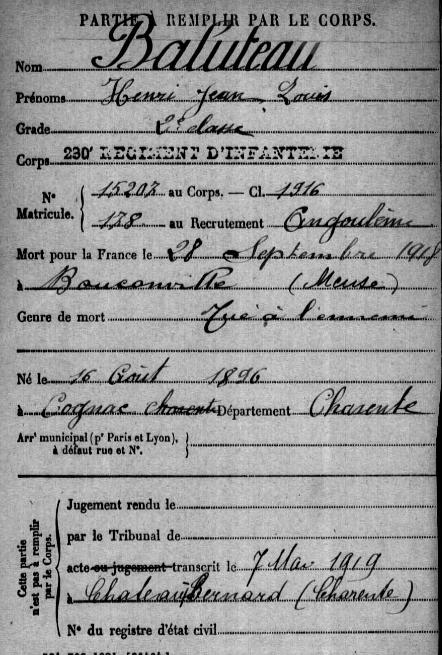 PARTIE À REMPLIR PAR LE CORPS.
Nom Baluteau
Prénoms Henri Jean Louis
Grade 2e classe
Corps 230e REGIMENT D'INFANTERIE
N° Matricule. 15207 au Corps. — Cl. 1916
178 au Recrutement Angoulême
Mort pour la France le 28 Septembre 1918
à Bouconville (Meuse)
Genre de mort Tué à l'ennemi
Né le 16 Août 1896
à Cognac Charente Département Charente
Arrt municipal (pr Paris et Lyon),
à défaut rue et N°.
Cette partie n'est pas à remplir par le Corps.
Jugement rendu le
par le Tribunal de
acte ou jugement transcrit le 7 Mai 1919
à Chateau Bernard (Charente)
N° du registre d'état civil